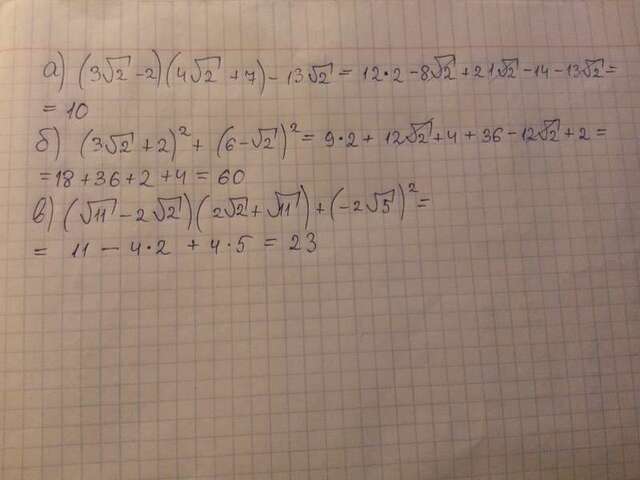 а) (3√2 - 2)(4√2 + 7) - 13√2 = 12·2 - 8√2 + 21√2 - 14 - 13√2 =
= 10
б) (3√2 + 2)² + (6 - √2)² = 9·2 + 12√2 + 4 + 36 - 12√2 + 2 =
= 18 + 36 + 2 + 4 = 60
в) (√11 - 2√2)(2√2 + √11) + (-2√5)² =
= 11 - 4·2 + 4·5 = 23